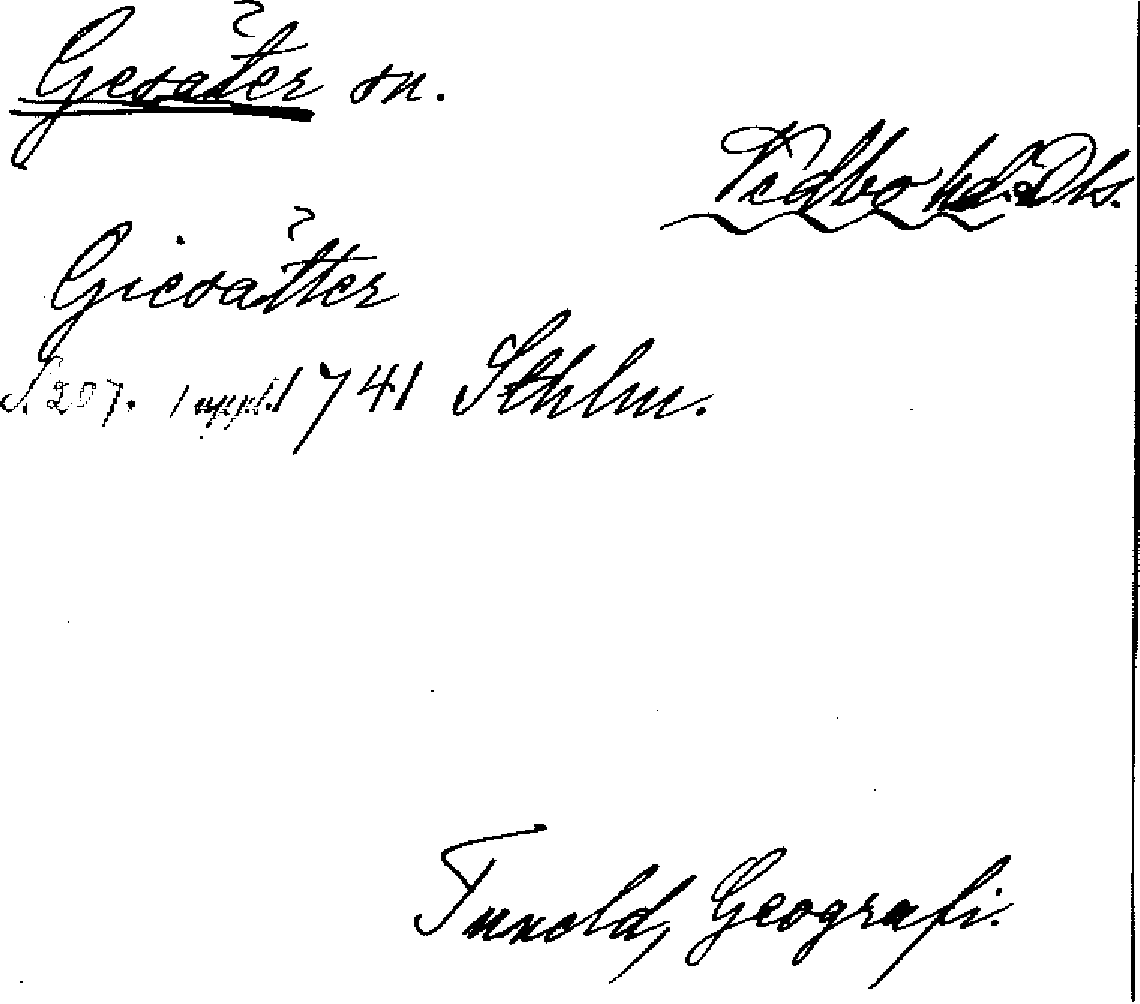 Gesäter sn.
Vedbo hd. Dls.
Giesätter
S. 207. 1 uppl. 1741 Sthlm.
Tuneld, Geografi.